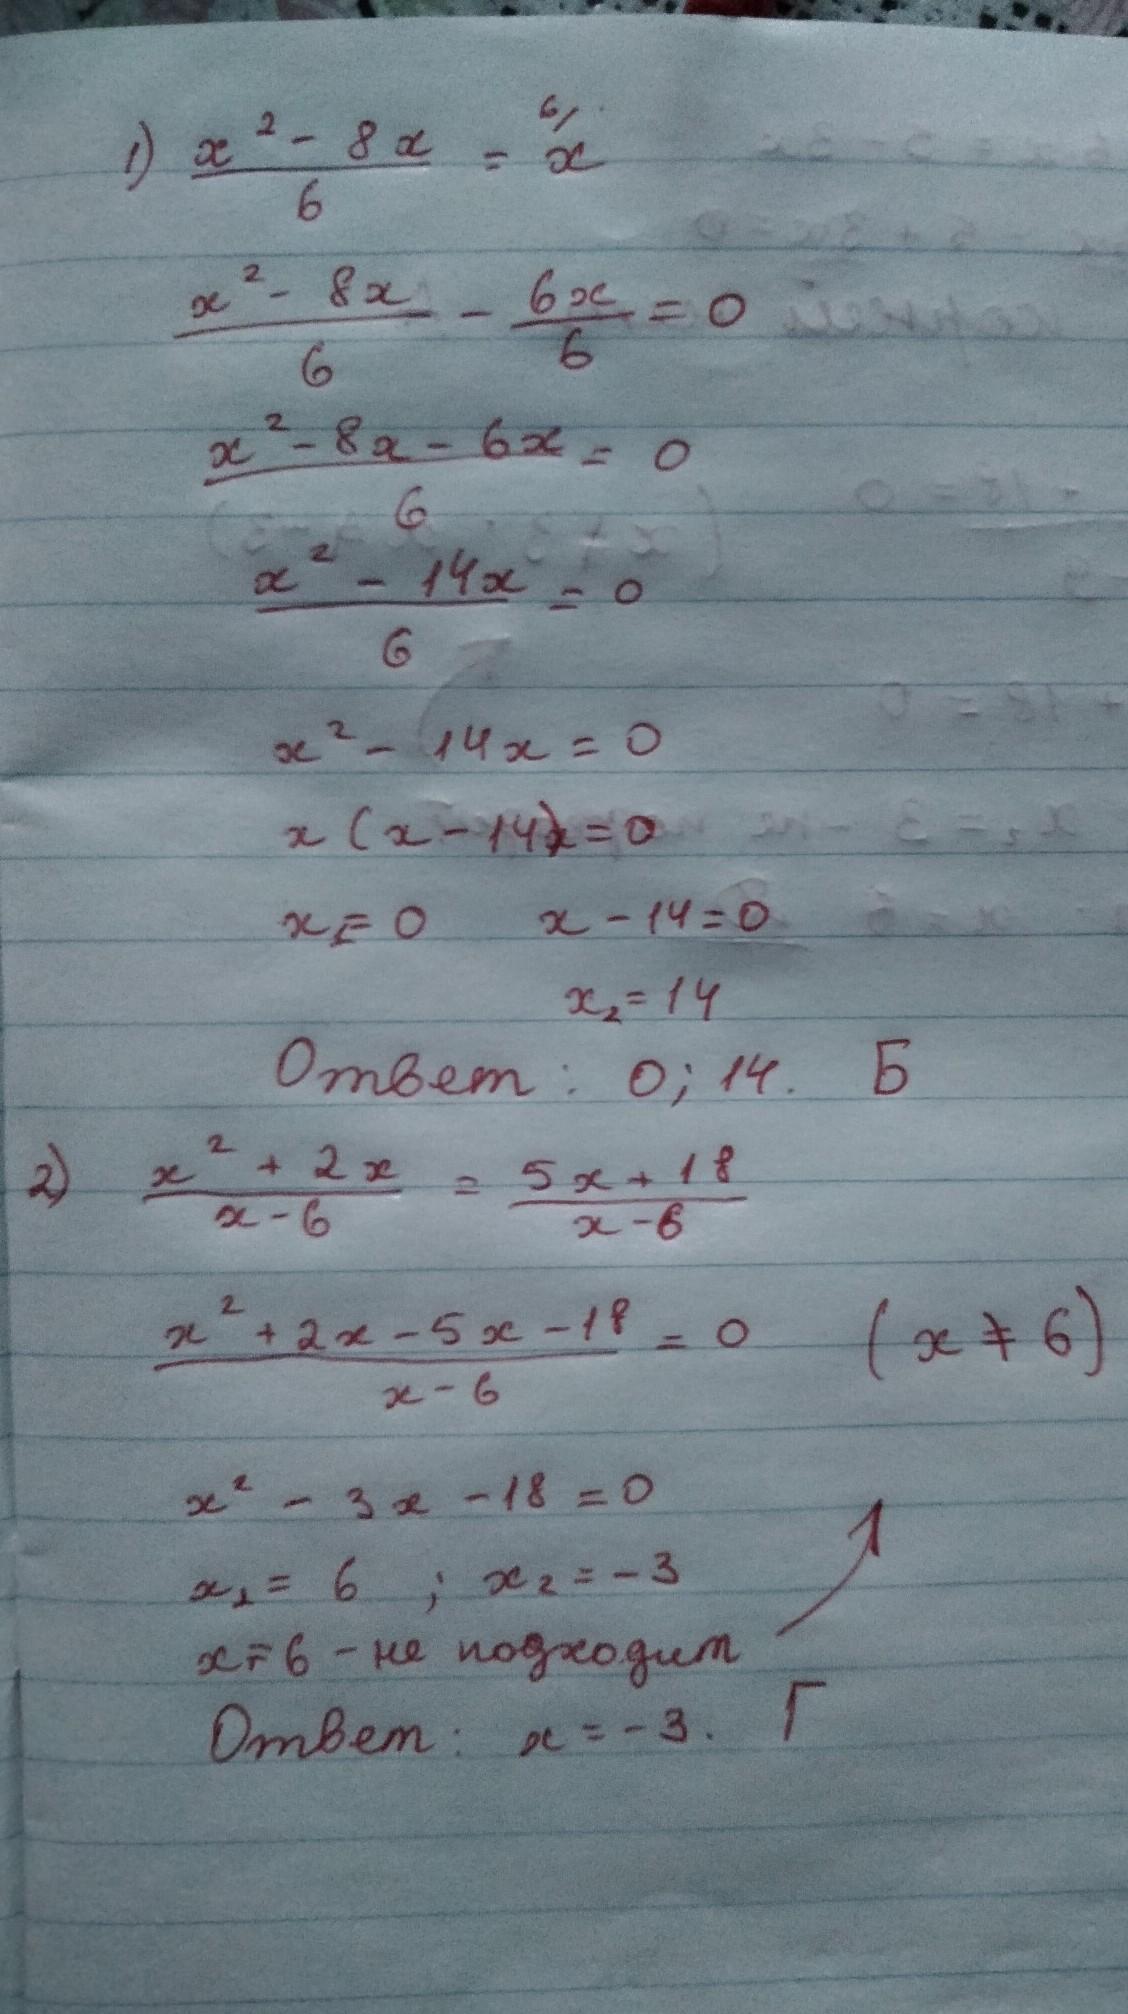 1) (x² - 8x)/6 = x 6/
(x² - 8x)/6 - 6x/6 = 0
(x² - 8x - 6x)/6 = 0
(x² - 14x)/6 = 0
x² - 14x = 0
x (x - 14) = 0
x₁ = 0 x - 14 = 0
x₂ = 14
Ответ: 0; 14. Б
2) (x² + 2x)/(x - 6) = (5x + 18)/(x - 6)
(x² + 2x - 5x - 18)/(x - 6) = 0 (x ≠ 6)
x² - 3x - 18 = 0
x₁ = 6 ; x₂ = -3
x = 6 - не подходит
Ответ: x = -3. Г